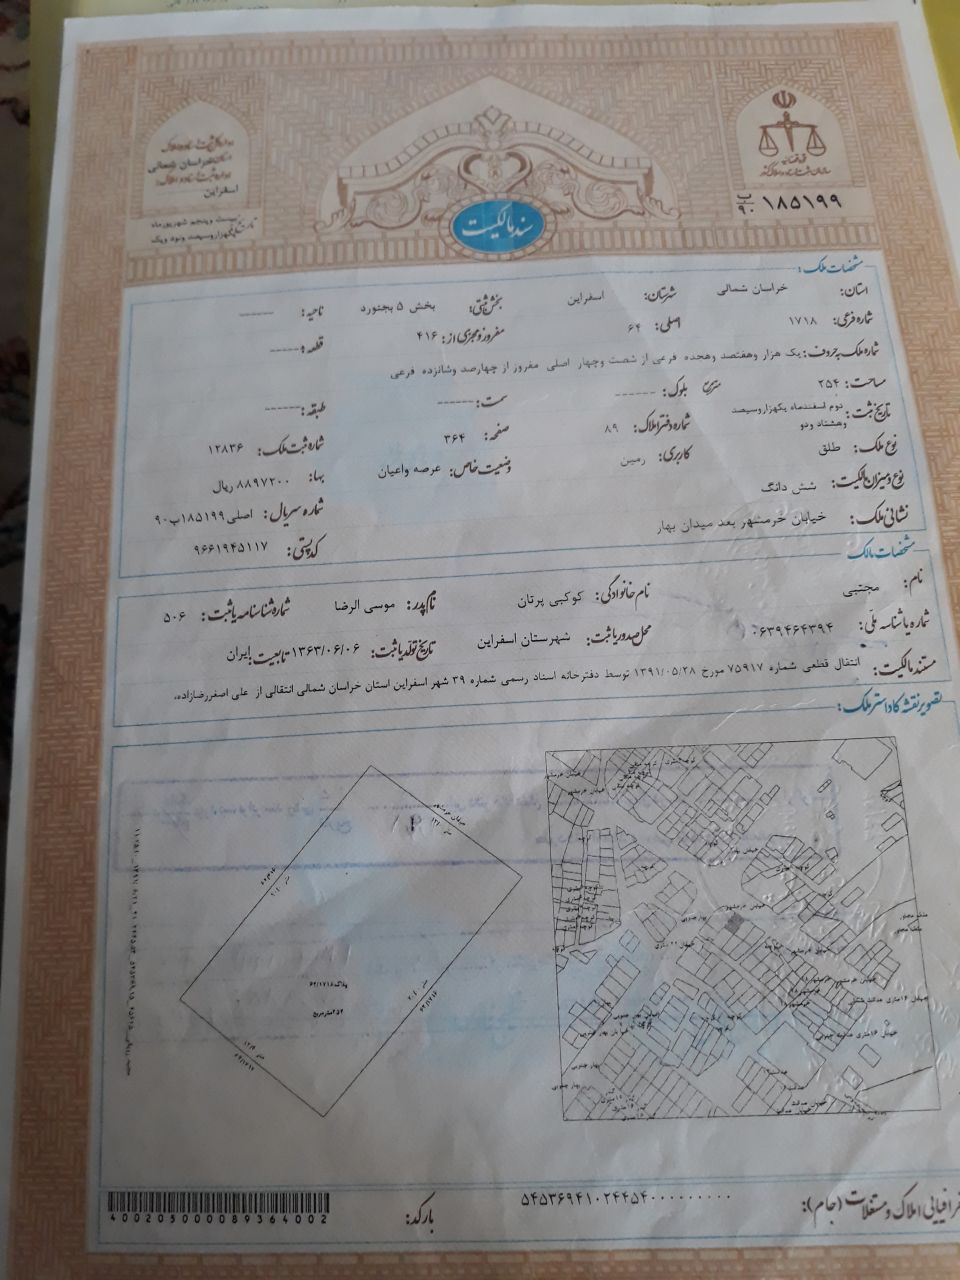 قوه قضائیه
سازمان ثبت اسناد و املاک کشور
۱۸۵۱۹۹ ب ۹۰
سند مالکیت
اداره کل ثبت اسناد و املاک
استان خراسان شمالی
اداره ثبت اسناد و املاک
اسفراین
تاریخ بیست و پنجم شهریورماه
یکهزاروسیصد ونود ویک
مشخصات ملک:
استان: خراسان شمالی شهرستان: اسفراین بخش ثبتی: بخش ۵ بجنورد ناحیه: ------
شماره فرعی: ۱۷۱۸ اصلی: ۶۴ مفروز و مجزی از: ۴۱۶ قطعه: -----
شماره ملک به حروف: یک هزار وهفتصد وهجده فرعی از شصت وچهار اصلی مفروز از چهارصد وشانزده فرعی
مساحت: ۲۵۴ متر مربع بلوک: ------ سمت: ------ طبقه: ------
تاریخ ثبت: دوم اسفندماه یکهزاروسیصد وهشتاد ودو شماره دفتر املاک: ۸۹ صفحه: ۳۶۴ شماره ثبت ملک: ۱۲۸۳۶
نوع ملک: طلق کاربری: زمین وضعیت خاص: عرصه واعیان بها: ۸۸۹۷۲۰۰ ریال
نوع و میزان مالکیت: شش دانگ شماره سریال: اصلی ۱۸۵۱۹۹ب۹۰
نشانی ملک: خیابان خرمشهر بعد میدان بهار کدپستی: ۹۶۶۱۹۴۵۱۱۷
مشخصات مالک
نام: مجتبی نام خانوادگی: کوکبی پرتان نام پدر: موسی الرضا شماره شناسنامه یا ثبت: ۵۰۶
شماره یا شناسه ملی: ۰۶۳۹۴۶۴۳۹۴ محل صدور یا ثبت: شهرستان اسفراین تاریخ تولد یا ثبت: ۱۳۶۳/۰۶/۰۶ تابعیت: ایران
مستند مالکیت: انتقال قطعی شماره ۷۵۹۱۷ مورخ ۱۳۹۱/۰۵/۲۸ توسط دفترخانه اسناد رسمی شماره ۳۹ شهر اسفراین استان خراسان شمالی انتقالی از علی اصغررضازاده.
تصویر نقشه کاداستر ملک:
خیابان خرمشهر
پلاک ۶۴/۱۷۱۸
۲۵۴مترمربع
۶۴/۱۷۱۶
۶۴/۱۷۱۷
خیابان خرمشهر
بهار جنوبی
جغرافیایی املاک و مستغلات (جام): ۵۴۵۳۶۹۴۱۰۲۴۴۵۴۰۰۰۰۰۰۰۰۰۰
بارکد:
400205000089364002